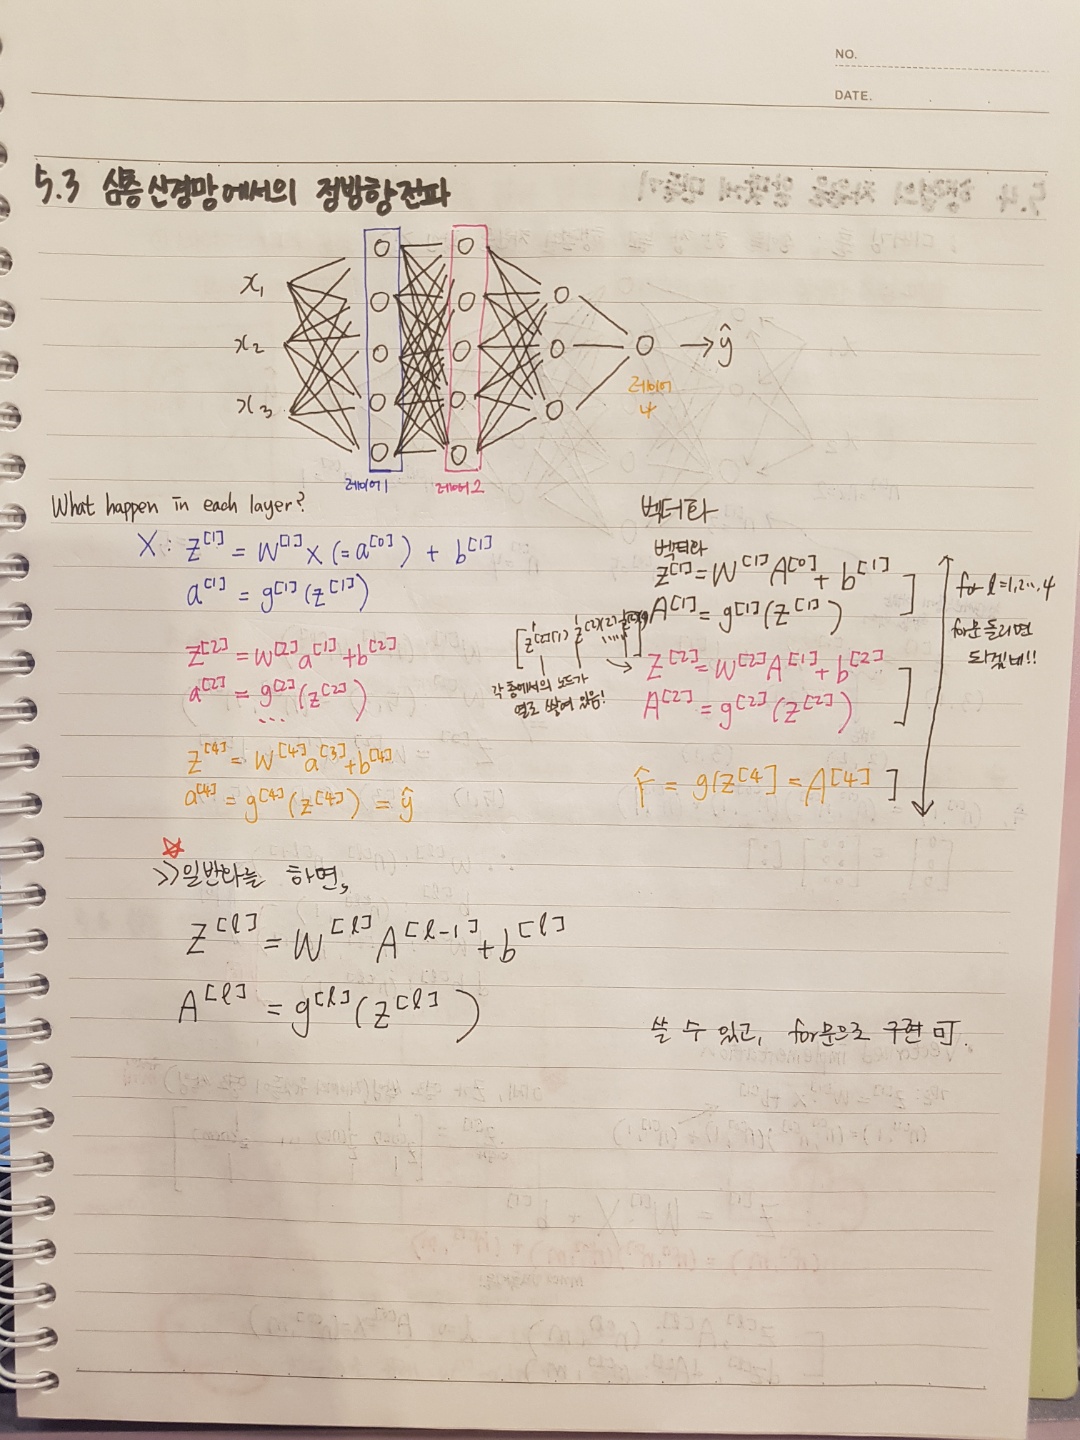 NO.
DATE.
5.3 심층신경망에서의 정방향전파
x₁
x₂
x₃
ŷ
레이어
4
레이어1
레이어2
What happen in each layer?
X : z^[1] = W^[1] X (= a^[0]) + b^[1]
a^[1] = g^[1](z^[1])
z^[2] = W^[2] a^[1] + b^[2]
a^[2] = g^[2](z^[2])
...
z^[4] = W^[4] a^[3] + b^[4]
a^[4] = g^[4](z^[4]) = ŷ
벡터화
벡터화
z^[1] = W^[1] A^[0] + b^[1]
A^[1] = g^[1](z^[1])
각 층에서의 노드가
열로 쌓여 있음!
Z^[2] = W^[2] A^[1] + b^[2]
A^[2] = g^[2](z^[2])
Ŷ = g(z^[4] = A^[4]
for l = 1,2..,4
for문 돌리면
되겠네!!
>> 일반화를 하면,
Z^[l] = W^[l] A^[l-1] + b^[l]
A^[l] = g^[l](z^[l])
쓸 수 있고, for문으로 구현 可.